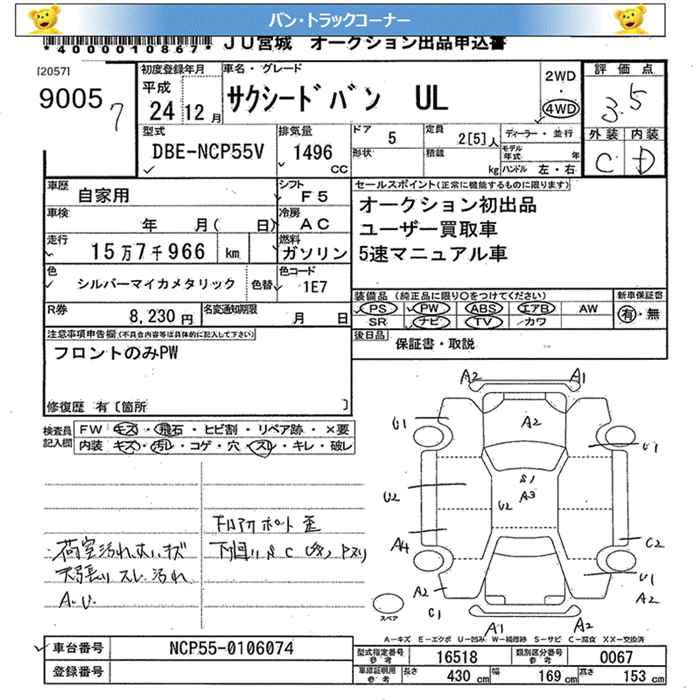 バン・トラックコーナー
*4000010867* JU宮城 オークション出品申込書
[2057]
9005 7
初度登録年月
平成
24 12月
車名・グレード
サクシードバン UL
2WD
・
4WD
評価点
3.5
外装 内装
C D
型式
DBE-NCP55V
排気量
1496 CC
ドア 5
形状
定員 2[5]人
積載 kg
ディーラー・並行
モデル年式 年
ハンドル 左・右
車歴 自家用
シフト F5
車検 年 月( 日)
冷房 AC
走行 15万7千966 km
燃料 ガソリン
色 シルバーマイカメタリック 色替
色コード 1E7
R券 8,230円
名変通知期限 月 日
セールスポイント(正常に機能するものに限ります)
オークション初出品
ユーザー買取車
5速マニュアル車
装備品 (純正品に限り○をつけてください)
PS PW ABS エアB AW
SR ナビ TV カワ
新車保証書
有・無
後日品 保証書・取説
注意事項申告欄(不具合内容等は具体的に記入して下さい)
フロントのみPW
修復歴 有 [箇所 ]
検査員記入欄
FW キズ・飛石・ヒビ割・リペア跡・×要
内装 キズ・汚レ・コゲ・穴・スレ・キレ・破レ
荷室汚れ キズ
天張り スレ 汚れ
A.U.
下回り S C
A2 A1
U1 A2 U1
S1
U2 U2 A3
A4 C2
A2 U1
C1 A2
A1 A2
スペア
A-キズ E-エクボ U-凹み W-補修跡 S-サビ C-腐食 XX-交換済
車台番号 NCP55-0106074
登録番号
型式指定番号 参考 16518
類別区分番号 参考 0067
車庫証明用 参考 長さ 430cm 幅 169cm 高さ 153cm